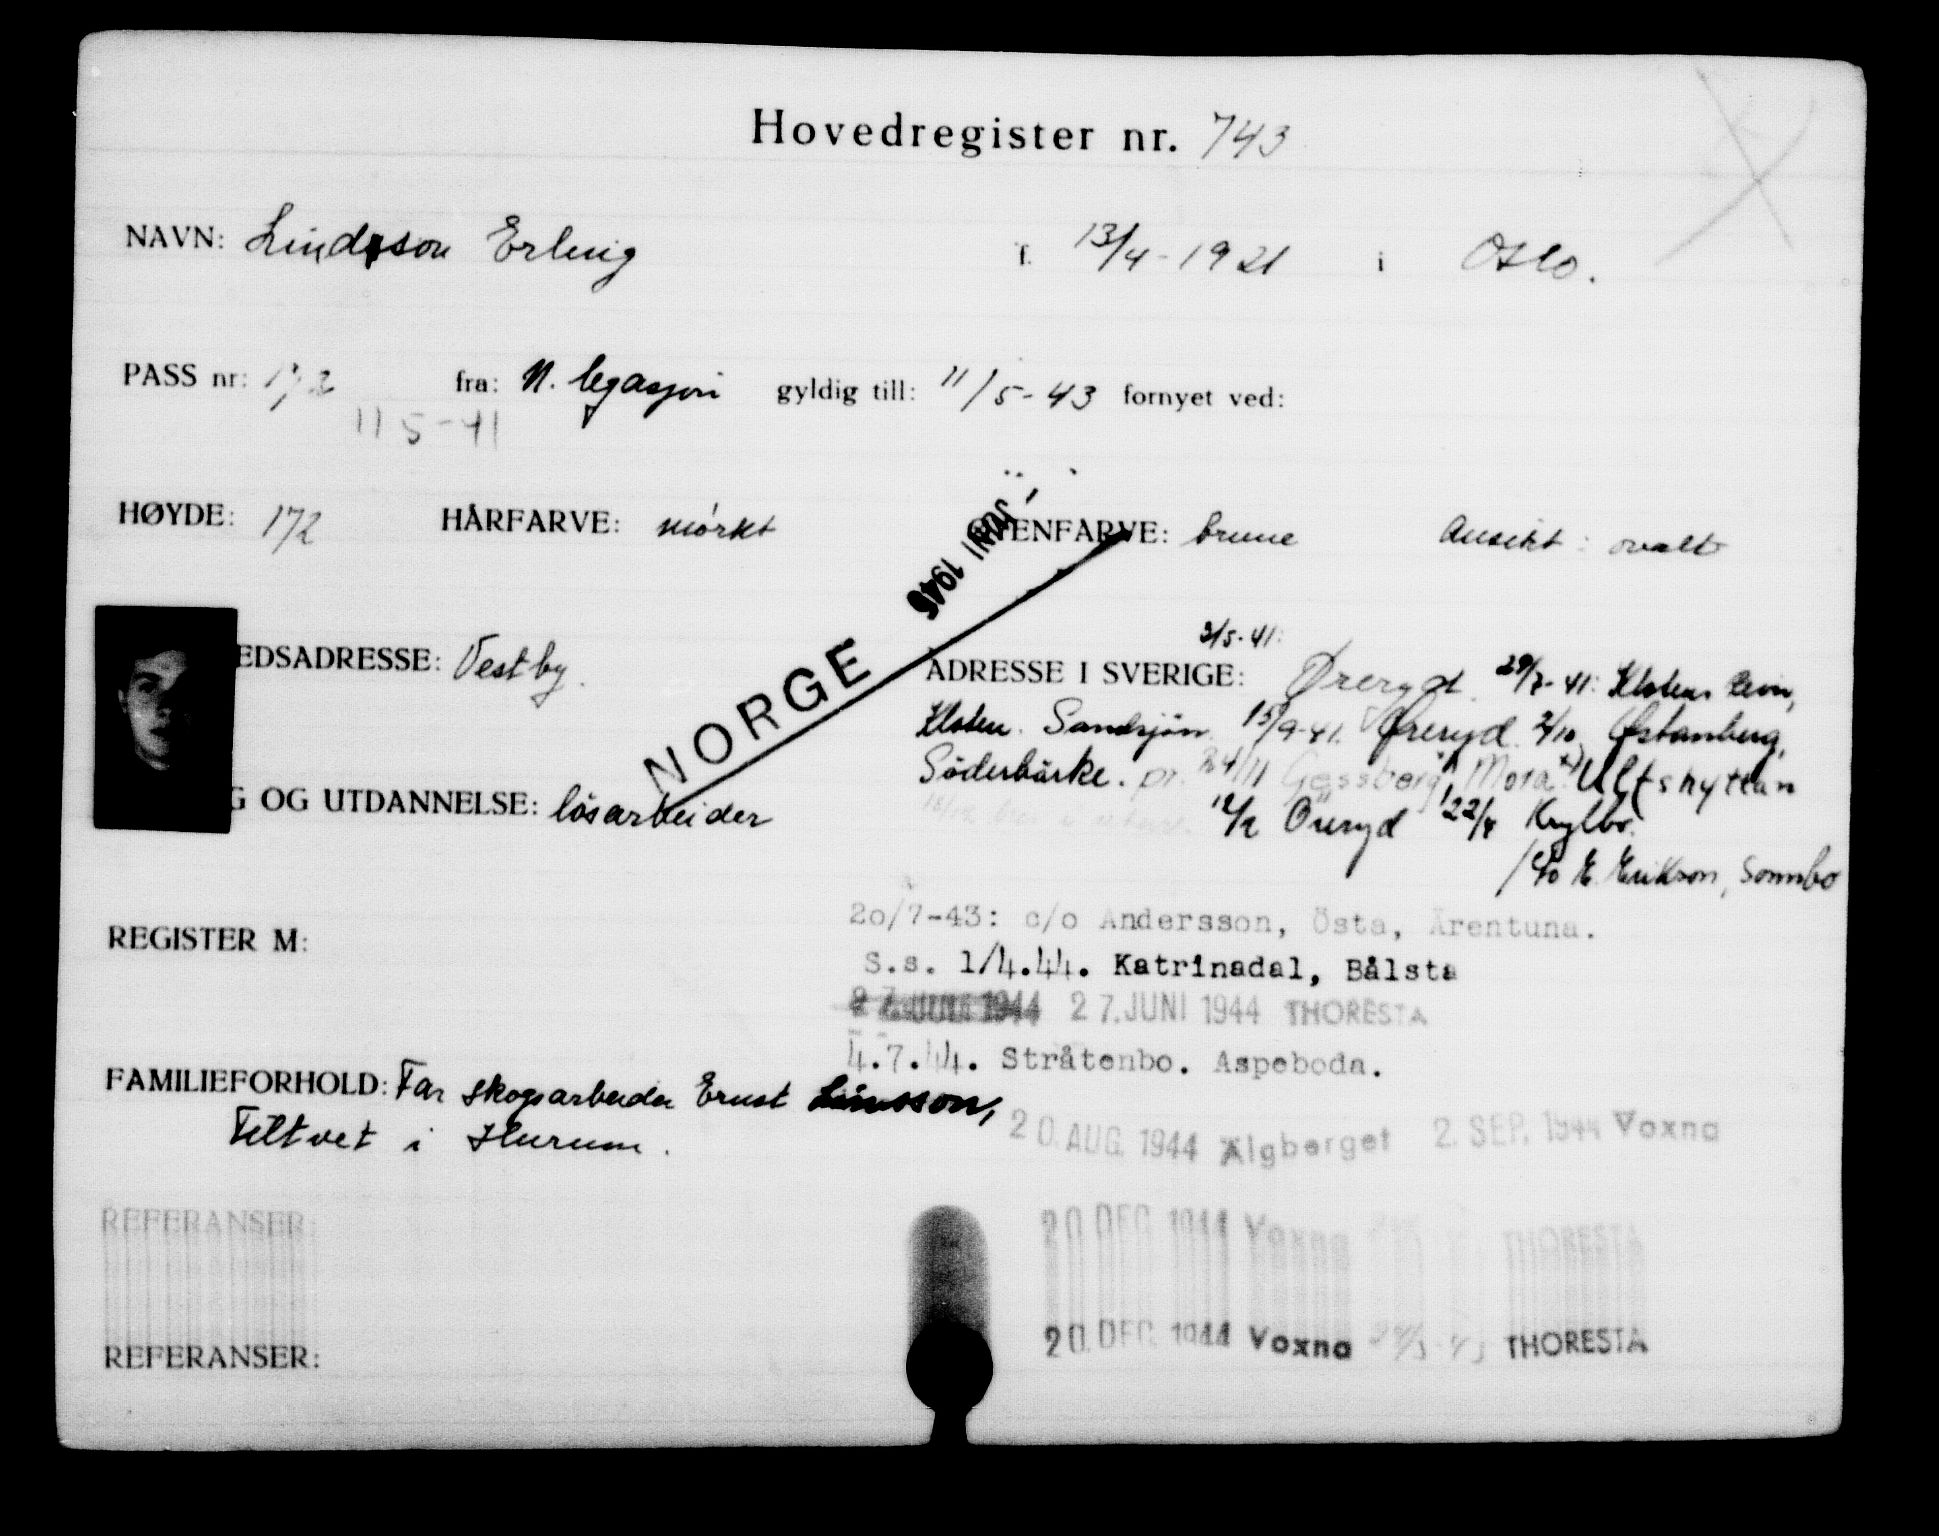 Hovedregister nr. 743
NAVN: Lindsson Erling f. 13/4-1921 i Oslo.
PASS nr: 172 fra: N. legasjon gyldig till: 11/5-43 fornyet ved:
11 5-41
HØYDE: 172 HÅRFARVE: mörkt ØYENFARVE: brune Ansikt: ovalt
JUNI 1945
NORGE
EDSADRESSE: Vestby. ADRESSE I SVERIGE: 3/5-41: Øreryd. 29/7-41: Kloten
Kloten. Sandsjön. 15/9-41. Øreryd. 2/10 Østanberg,
Söderbärke. pr. 24/11 Mora Ulfshyttan
G OG UTDANNELSE: lösarbeider 12/2 Öreryd 22/4 Krylbo.
c/o E. Erikson, Sonnbo
REGISTER M:
20/7-43: c/o Andersson, Östa, Ärentuna.
S.s. 1/4.44. Katrinadal, Bålsta
27. JUNI 1944 THORESTA
4.7.44. Stråtenbo. Aspeboda.
FAMILIEFORHOLD: Far skogsarbeider Ernst Linsson,
Filtvet i Hurum.
20. AUG. 1944 Älgberget 2. SEP. 1944 Voxna
REFERANSER: 20 DEC 1944 Voxna THORESTA
REFERANSER: 20. DEC. 1944 Voxna THORESTA